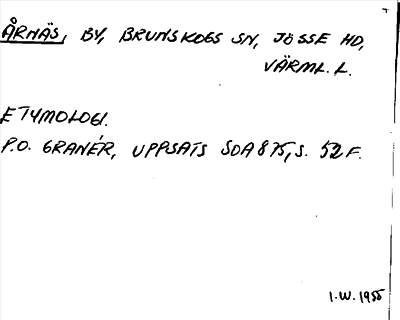 ÅRNÄS, BY, BRUNSKOGS SN, JÖSSE HD,
VÄRML. L.
ETYMOLOGI.
P.O. GRANÉR, UPPSATS SOA 875, S. 52 F.
I.W. 1955